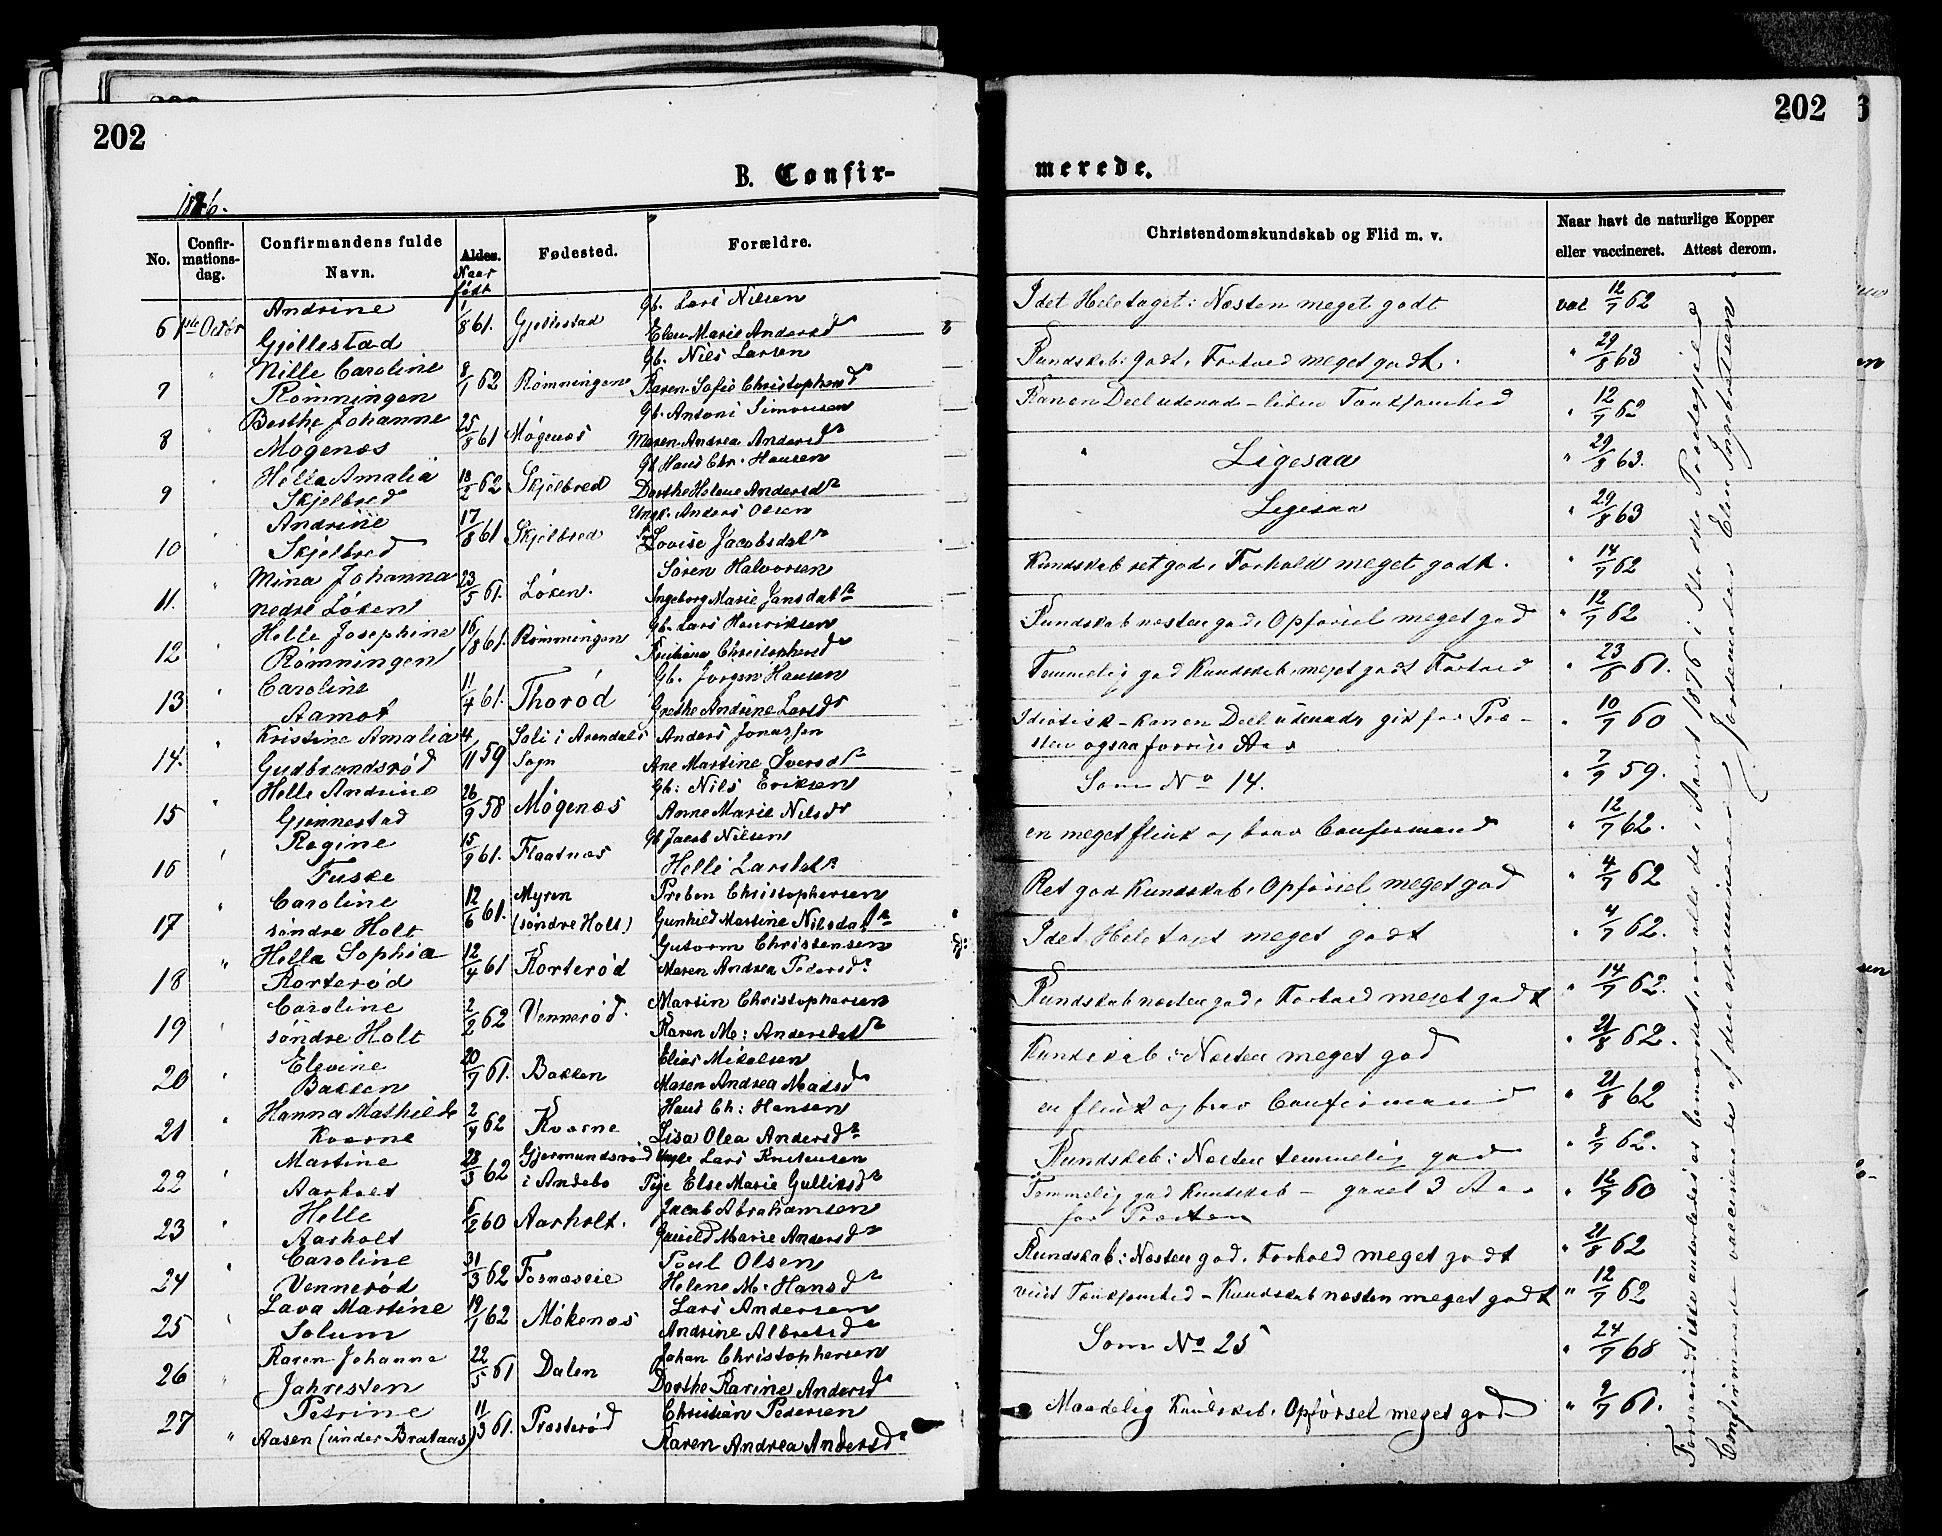 202
202
B. Confir-
merede.
1876.
No.
Confir-
mations-
dag.
Confirmandens fulde
Navn.
Alder.
Naar
født
Fødested.
Forældre.
Christendomskundskab og Flid m. v.
Naar havt de naturlige Kopper
eller vaccineret. Attest derom.
6 1ste Octbr Andrine Gjellestad 1/8 61. Gjellestad Gb. Lars Nilsen Elen Marie Andersdr I det Hele taget: Næsten meget godt vac 12/7 62
7 " Nille Caroline Rømningen 8/1 62 Rømningen Gb. Nils Larsen Karen Sofie Christophersdr Kundskab: godt, Forhold meget godt. " 29/8 63
8 " Berthe Johanne Møgenæs 25/8 61 Møgenæs Gb. Antoni Simonsen Maren Andrea Andersdr Kan en Deel udenad – liden Tænksomhed " 12/7 62
9 " Helle Amalia Skjelbred 18/2 62 Skjelbred Gb Hans Chr. Hansen Dorthe Helene Andersdr " Ligesaa " 29/8 63.
10 " Andrine Skjelbred 17/8 61 Skjelbred Ungk. Anders Olsen Lovise Jacobsdatr Ligesaa " 29/8 63
11. " Mina Johanna nedre Løken 23/5 61. Løken. Søren Halvorsen Ingeborg Marie Jansdatr Kundskab ret god, Forhold meget godt. " 14/7 62
12 " Helle Josephine Rømningen 16/8 61. Rømningen Gb. Lars Henriksen Kristiana Christophersdr Kundskab næsten god, Opførsel meget god " 12/7 62
13 " Caroline Aamot 11/4 61. Thorød Gb. Jørgen Hansen Grethe Andrine Larsdr Temmelig god Kundskab, meget godt Forhold " 23/8 61.
14. " Kristine Amalia Gudbrandsrød 4/11 59 Soli i Arendals Sogn Anders Jonassen Ane Martine Iversdr Idiotisk – kan en Deel udenad, gik for Præ-
sten ogsaa forrige Aar " 10/9 60
15 " Helle Andrine Gjennestad 26/9 58 Møgenæs Gb: Nils Eriksen Anne Marie Nilsdr Som No 14. " 7/9 59.
16 " Regine Fuske 15/9 61. Flaatnæs Gb Jacob Nilsen Helle Larsdatr en meget flink og brav Confirmand " 12/7 62.
17 " Caroline søndre Holt 12/6 61. Myren (søndre Holt.) Preben Christophersen Gunhild Martine Nilsdatr Ret god Kundskab, Opførsel meget god " 4/7 62
18 " Hella Sophia Korterød 12/4 61 Korterød Gutorm Christensen Maren Andrea Pedersdr I det Hele taget meget godt " 4/7 62.
19 " Caroline søndre Holt 2/2 62 Vennerød. Martin Christophersen Karen M: Andersdatr Kundskab næsten god, Forhold meget godt " 14/7 62.
20 " Elevine Bakken 20/7 61. Bakken Elias Mikalsen Maren Andrea Madsdr Kundskab: Næsten meget god " 21/8 62.
21 " Hanna Mathilde Kværne 2/4 62 Kværne Hans Ch: Hansen Lisa Olea Andersdr en flink og brav Confirmand " 21/8 62
22 " Martine Aarholt 28/3 62 Gjermundsrød i Andebo Ungk Lars Knutsen Pige Else Marie Gulliksdr Kundskab: Næsten temmelig god " 8/7 62.
23 " Helle Aarholt 6/2 60 Aarholt. Jacob Abrahamsen Gunild Marie Andersdr Temmelig god Kundskab – gaaet 3 Aar
for Præsten " 12/7 60
24 " Caroline Vennerød 31/3 62 Fosnæseie Poul Olsen Helene M. Hansdr Kundskab: Næsten god. Forhold meget godt " 21/8 62
25 " Lava Martine Solum 19/1 62 Møkenæs Lars Andersen Andrine Albretsdr viist Tænksomhed – Kundskab næsten meget godt " 12/7 62
26 " Karen Johanne Jahresten 22/5 61 Dalen Johan Christophersen Dorthe Karine Andersdr Som No 25 " 24/7 68
27 " Petrine Aasen (under Brataas) 11/3 61. Præsterød Christian Pedersen Karen Andrea Andersdr Maadelig Kundskab, Opførsel meget god " 9/7 61.
Forsaavidt ikke anderledes er bemærket, ere alle de i Aaret 1876 i Stokke Præstegjeld
Confirmerede vaccinerede af den examinerede Jordemoder Elen Ingebretsen